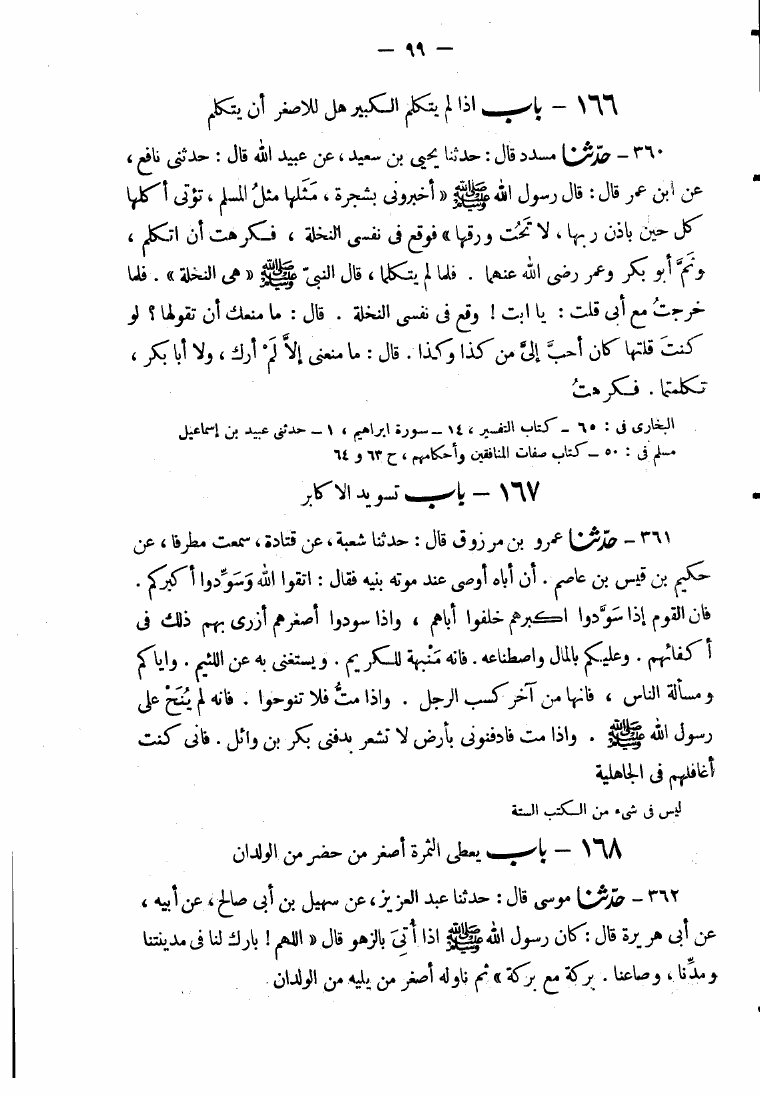 — ٩٩ —
١٦٦ – باب اذا لم يتكلم الكبير هل للاصغر أن يتكلم
٣٦٠ – حدّثنا مسدد قال : حدثنا يحيى بن سعيد ، عن عبيد الله قال : حدثنى نافع ،
عن ابن عمر قال : قال رسول الله ﷺ « أخبرونى بشجرة ، مَثَلها مثلُ المسلم ، تؤتى أكلها
كل حين باذن ربها ، لا تَحُت ورقها » فوقع فى نفسى النخلة ، فكرهت أن اتكلم ،
وثَمَّ أبو بكر وعمر رضى الله عنهما . فلما لم يتكلما ، قال النبىّ ﷺ « هى النخلة » . فلما
خرجتُ مع أبى قلت : يا ابت ! وقع فى نفسى النخلة . قال : ما منعك أن تقولها ؟ لو
كنتَ قلتها كان أحبَّ إلىَّ من كذا وكذا . قال : ما منعنى إلاَّ لَمْ أرك ، ولا أبا بكر ،
تكلمتما . فكرهتُ
البخارى فى : ٦٥ – كتاب التفسير ، ١٤ – سورة ابراهيم ، ١ – حدثنى عبيد بن إسماعيل
مسلم فى : ٥٠ – كتاب صفات المنافقين وأحكامهم ، ح ٦٣ و ٦٤
١٦٧ – باب تسويد الاكابر
٣٦١ – حدّثنا عمرو بن مرزوق قال : حدثنا شعبة ، عن قتادة ، سمعت مطرفا ، عن
حكيم بن قيس بن عاصم . أن أباه أوصى عند موته بنيه فقال : اتقوا الله وَسَوِّدوا أكبركم .
فان القوم إذا سَوَّدوا اكبرهم خلفوا أباهم ، واذا سودوا أصغرهم أزرى بهم ذلك فى
أكفائهم . وعليكم بالمال واصطناعه . فانه مَنْبهة للكريم . ويستغنى به عن اللئيم . واياكم
ومسألة الناس ، فانها من آخر كسب الرجل . واذا متُّ فلا تنوحوا . فانه لم يُنَحْ على
رسول الله ﷺ . واذا مت فادفنونى بأرض لا تشعر بدفنى بكر بن وائل . فانى كنت
أغافلهم فى الجاهلية
ليس فى شىء من الكتب الستة
١٦٨ – باب يعطى الثمرة أصغر من حضر من الولدان
٣٦٢ – حدّثنا موسى قال : حدثنا عبد العزيز ، عن سهيل بن أبى صالح ، عن أبيه ،
عن أبى هريرة قال : كان رسول الله ﷺ اذا أُتِىَ بالزهو قال « اللهم ! بارك لنا فى مدينتنا
ومدِّنا ، وصاعنا . بركة مع بركة » ثم ناوله أصغر من يليه من الولدان